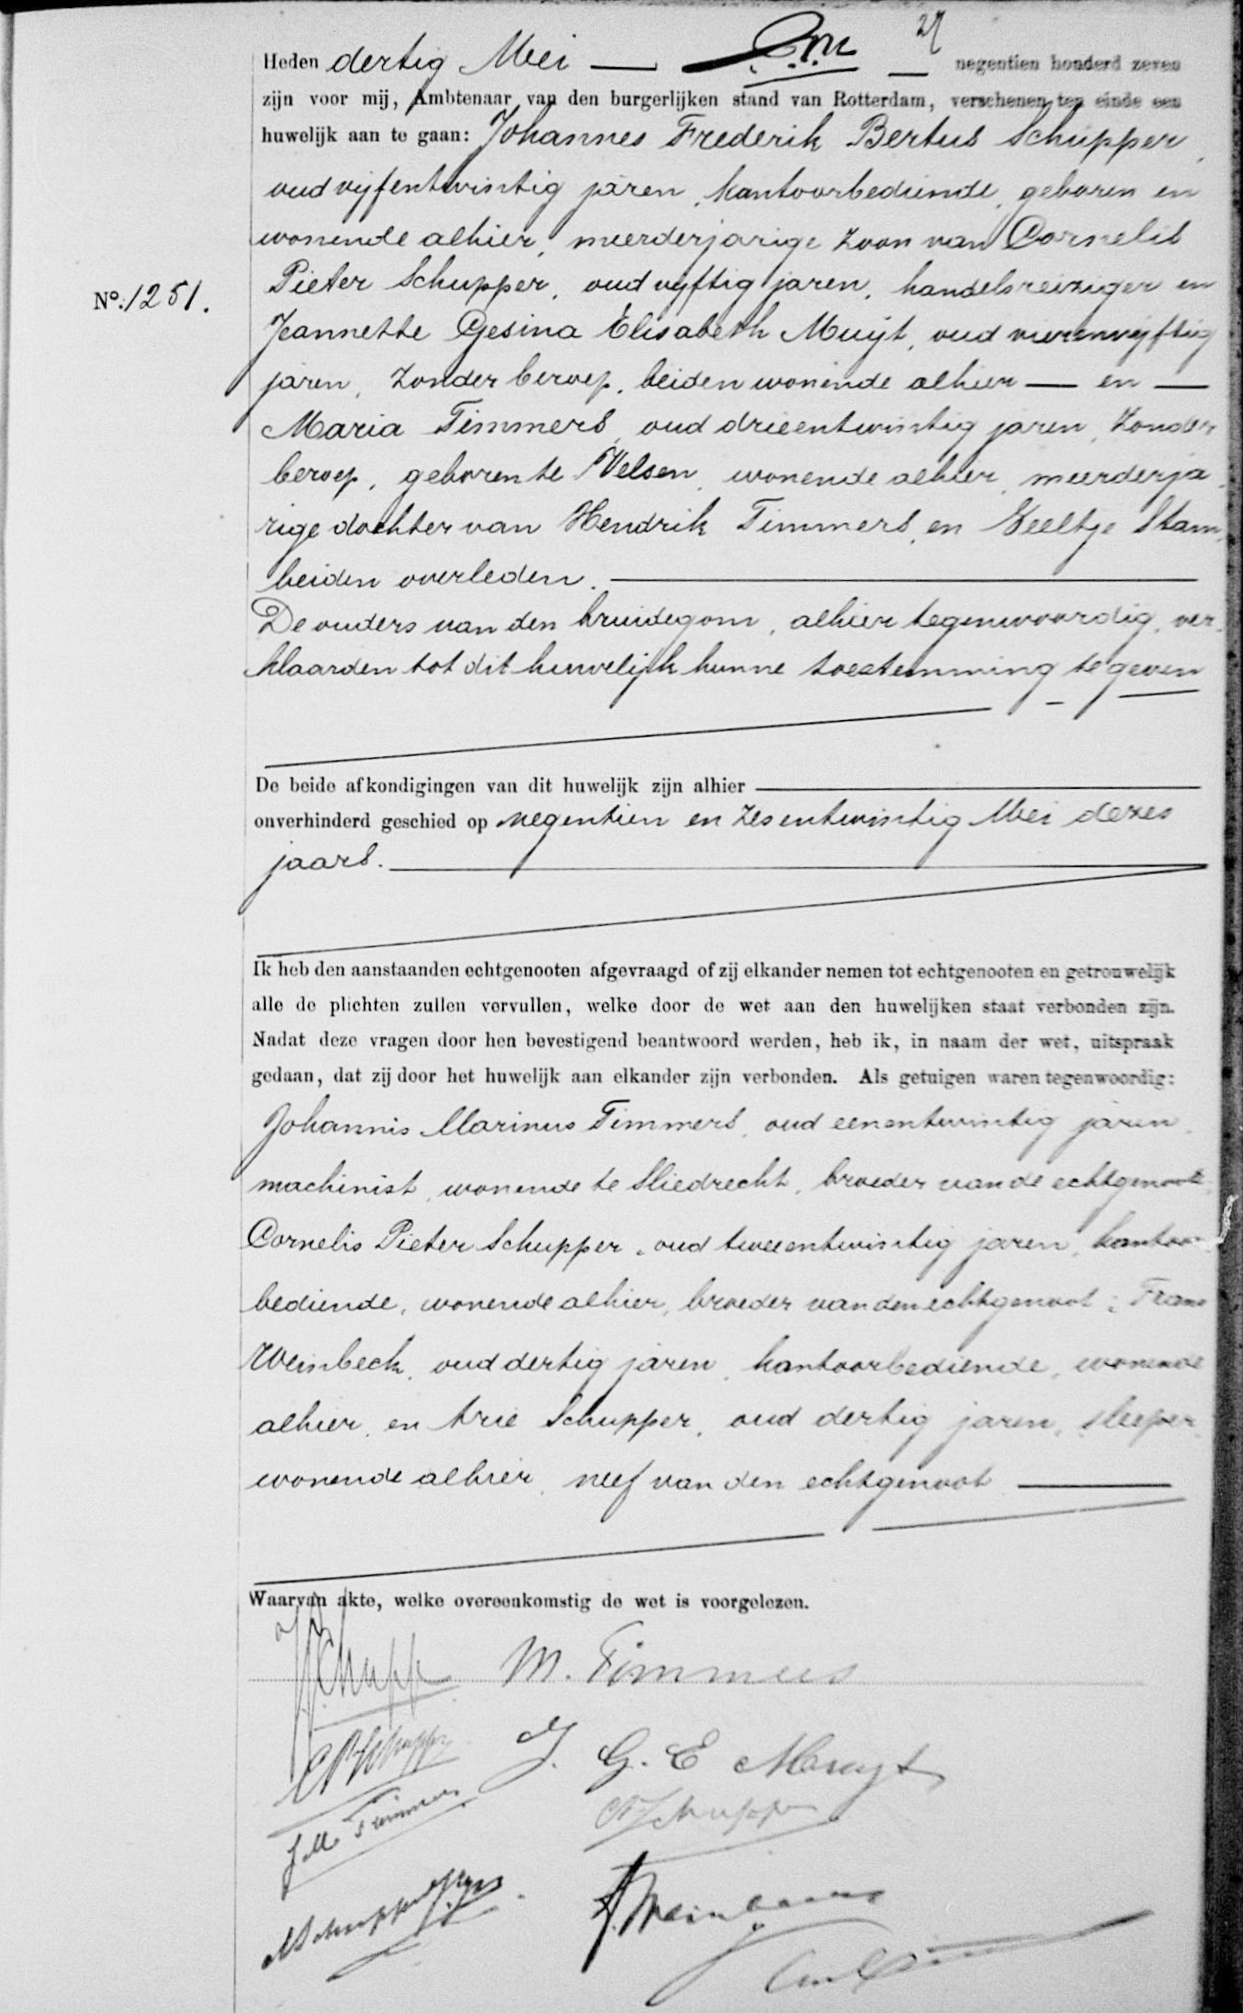 27
Heden dertig Mei negentien honderd zeven
zijn voor mij, Ambtenaar van den burgerlijken stand van Rotterdam, verschenen ten einde een
huwelijk aan te gaan: Johannes Frederik Bertus Schupper,
oud vijfentwintig jaren, kantoorbediende, geboren en
wonende alhier, meerderjarige zoon van Cornelis
Pieter Schupper, oud vyftig jaren, handelsreiziger en
No. 1251.
Jeannette Gesina Elisabeth Muijt, oud vierenvyftig
jaren, zonder beroep, beiden wonende alhier — en —
Maria Timmers, oud drieentwintig jaren, zonder
beroep, geboren te Velsen, wonende alhier, meerderja-
rige dochter van Hendrik Timmers, en Neeltje Stam,
beiden overleden.
De ouders van den bruidegom, alhier tegenwoordig, ver-
klaarden tot dit huwelijk hunne toestemming te geven
De beide afkondigingen van dit huwelijk zijn alhier
onverhinderd geschied op negentien en zesentwintig Mei dezes
jaars.
Ik heb den aanstaanden echtgenooten afgevraagd of zij elkander nemen tot echtgenooten en getrouwelijk
alle de plichten zullen vervullen, welke door de wet aan den huwelijken staat verbonden zijn.
Nadat deze vragen door hen bevestigend beantwoord werden, heb ik, in naam der wet, uitspraak
gedaan, dat zij door het huwelijk aan elkander zijn verbonden. Als getuigen waren tegenwoordig:
Johannis Marinus Timmers, oud eenentwintig jaren,
machinist, wonende te Sliedrecht, broeder van de echtgenoote,
Cornelis Pieter Schupper, oud tweeentwintig jaren, kantoor-
bediende, wonende alhier, broeder van den echtgenoot; Frans
Weinbeck, oud dertig jaren, kantoorbediende, wonende
alhier, en Arie Schupper, oud dertig jaren, sleeper,
wonende alhier, neef van den echtgenoot
Waarvan akte, welke overeenkomstig de wet is voorgelezen.
M. Timmers
CP Schupper
J. G. E Muyt
JM Timmers
CP Schupper